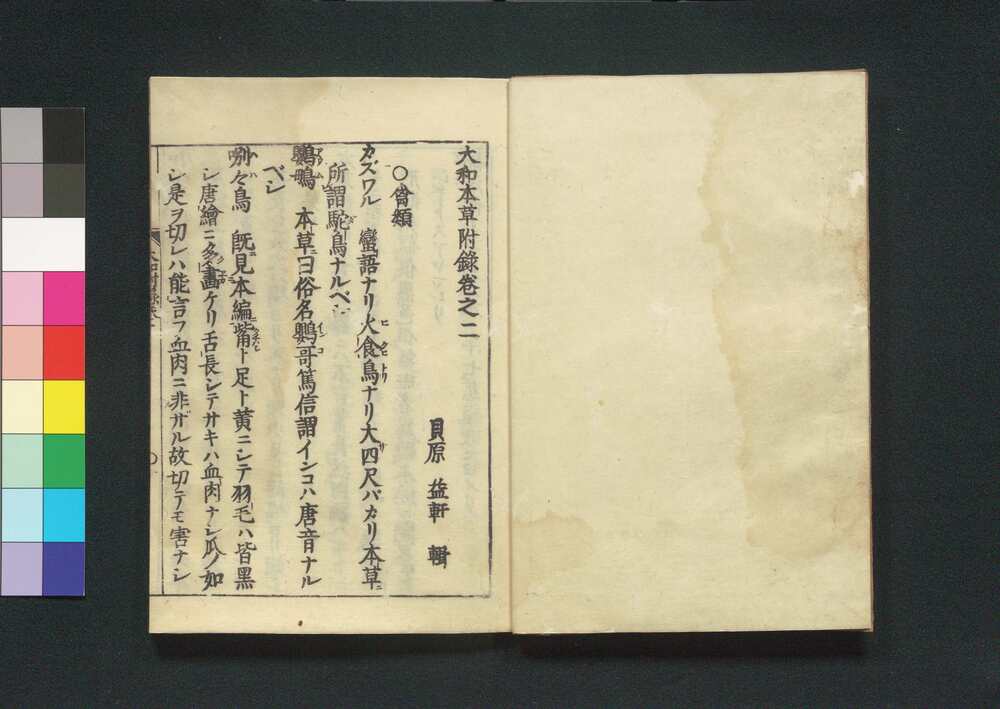 大和本草附録巻之二
貝原 益軒 輯
○禽類
カズワル 蠻語ナリ火食鳥ナリ大四尺バカリ本草ニ
所謂駝鳥ナルベシ
鸚鴞 本草ニ曰俗名鸚哥篤信謂インコハ唐音ナル
ベシ
哵々鳥 既見本編觜ト足ト黄ニシテ羽毛ハ皆黒
シ唐繪ニ多ク畫ケリ舌長シテサキハ血肉ナシ爪ノ如
シ是ヲ切レハ能言フ血肉ニ非ザル故切テモ害ナシ